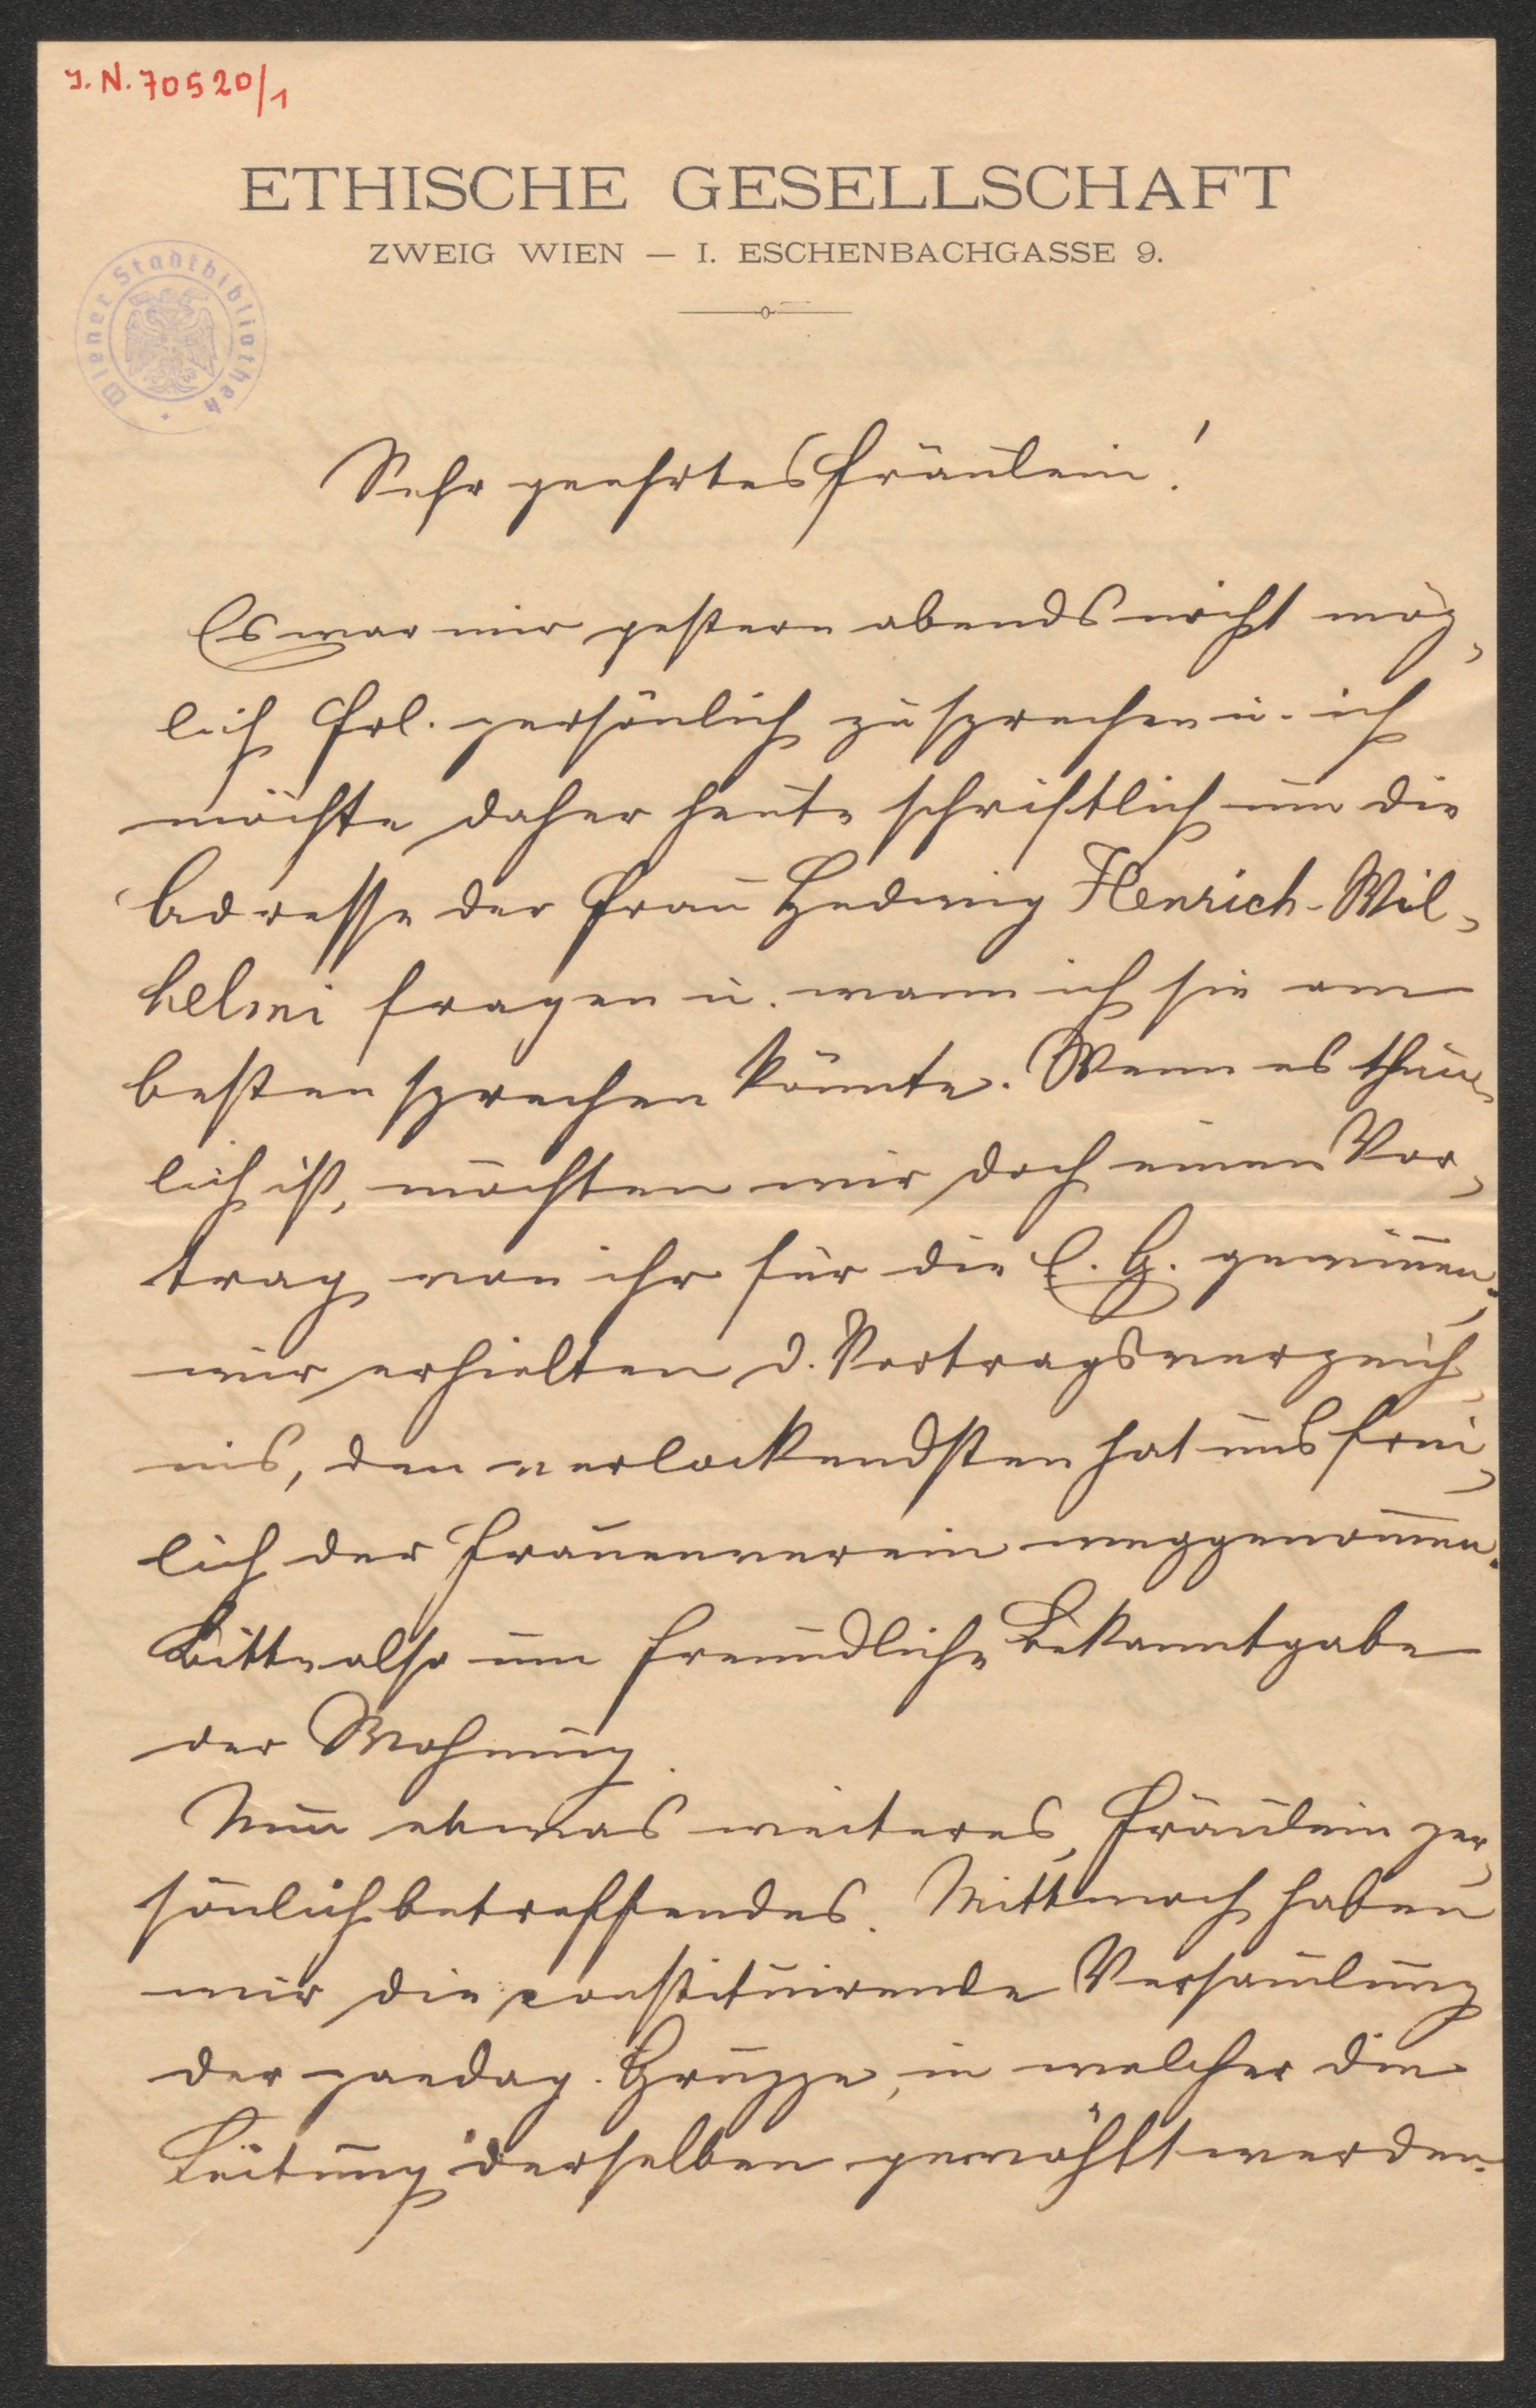 J. N. 70520/1
ETHISCHE GESELLSCHAFT
ZWEIG WIEN — I. ESCHENBACHGASSE 9.
Wiener Stadtbibliothek
Sehr geehrtes Fräulein!
Es war mir gestern abends nicht mög-
lich Frl. persönlich zu sprechen u. ich
möchte daher heute schriftlich um die
Adresse der Frau Hedwig Henrich-Wil-
helmi fragen u. wann ich sie am
besten sprechen könnte. Wenn es thun-
lich ist, möchten wir doch einen Vor-
trag von ihr für die E. G. gewinnen;
wir erhielten d. Vortragsverzeich-
nis, den verlockendsten hat uns frei-
lich der Frauenverein weggenommen.
Bitte also um freundliche Bekanntgabe
der Wohnung.
Nun etwas weiteres, Fräulein per-
sönlich betreffendes. Mittwoch haben
wir die constituirende Versamlung
der paedag. Gruppe, in welcher die
Leitung derselben gewählt werden